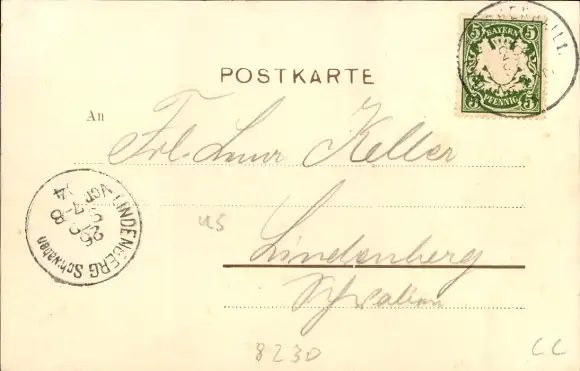 POSTKARTE
5 BAYERN 5
5 PFENNIG 5
An
Frl. Keller
LINDENBERG Schwaben
VOR 7-8
26
us
Lindenberg
Schwaben
8230
CC